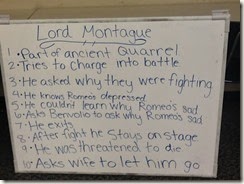 Lord Montague
1. Part of ancient Quarrel
2. Tries to charge into battle
3. He asked why they were fighting
4. He knows Romeo's depressed
5. He couldn't learn why Romeo's sad
6. Asks Benvolio to ask why Romeo's sad
7. He exits
8. After fight he stays on stage
9. He was threatened to die
10. Asks wife to let him go